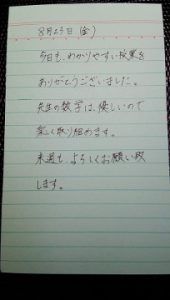 8月23日(金)
今日も、わかりやすい授業を
ありがとうございました。
先生の数学は、優しいので
楽しく取り組めます。
来週も、よろしくお願い致
します。